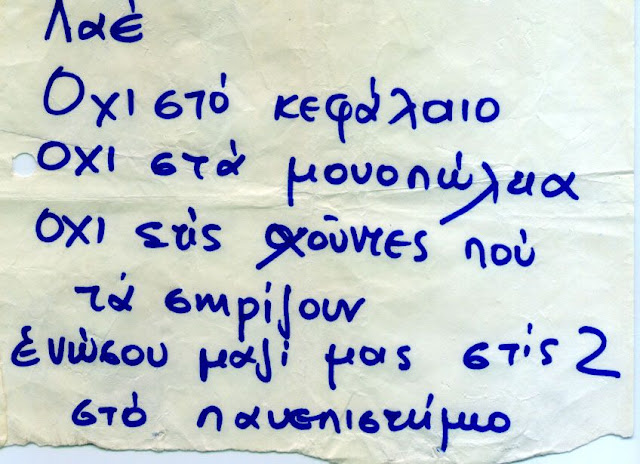 Λαέ
Οχι στό κεφάλαιο
οχι στά μουοπώλεια
οχι στίς χοῦντες πού
τά στηρίζουν
ἑνώσου μαζί μας στίς 2
στό πανεπιστήμιο